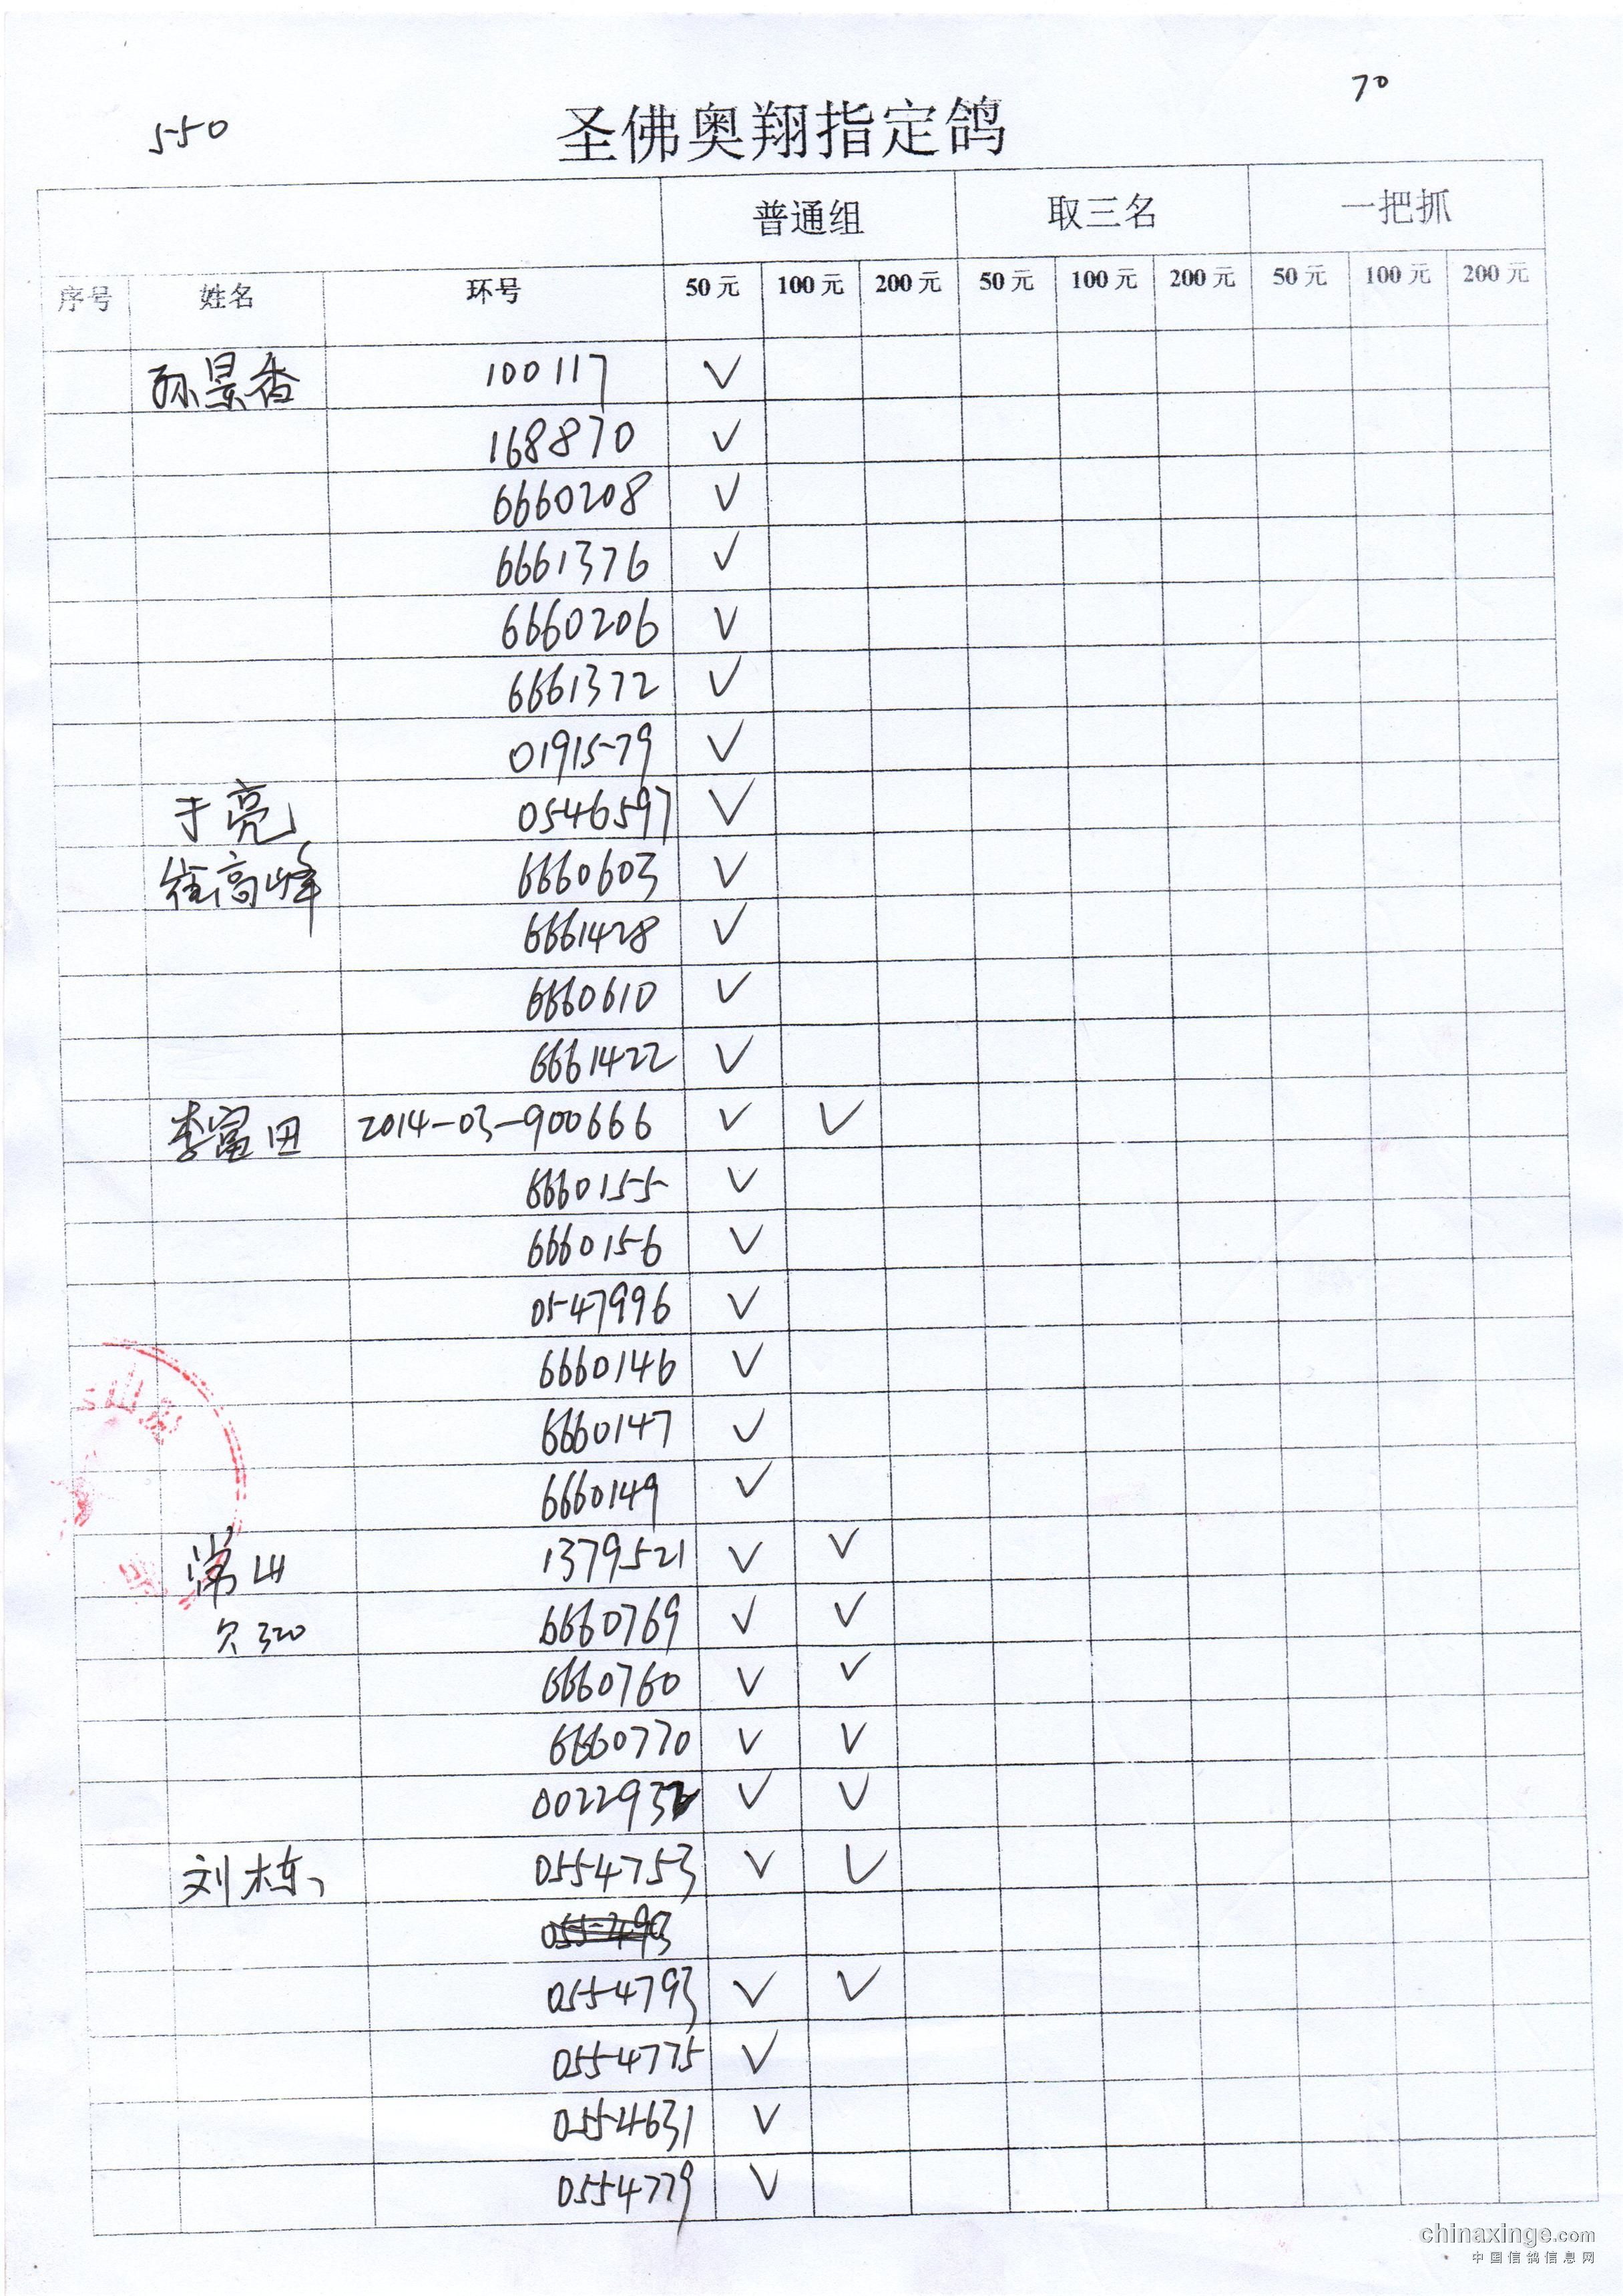 550
70
圣佛奥翔指定鸽
普通组 取三名 一把抓
序号 姓名 环号 50元 100元 200元 50元 100元 200元 50元 100元 200元
孙景香 100117 √
168870 √
6660208 √
6661376 √
6660206 √
6661372 √
0191579 √
于亮 0546597 √
徐高峰 6660603 √
6661428 √
6660610 √
6661422 √
李富田 2014-03-900666 √ √
6660155 √
6660156 √
0547996 √
6660146 √
6660147 √
6660149 √
常山 1379521 √ √
欠320 6660769 √ √
6660760 √ √
6660770 √ √
0022932 √ √
刘栋 0554753 √ √
0554793 √ √
0554775 √
0554631 √
0554779 √
chinaxinge.com
中国信鸽信息网